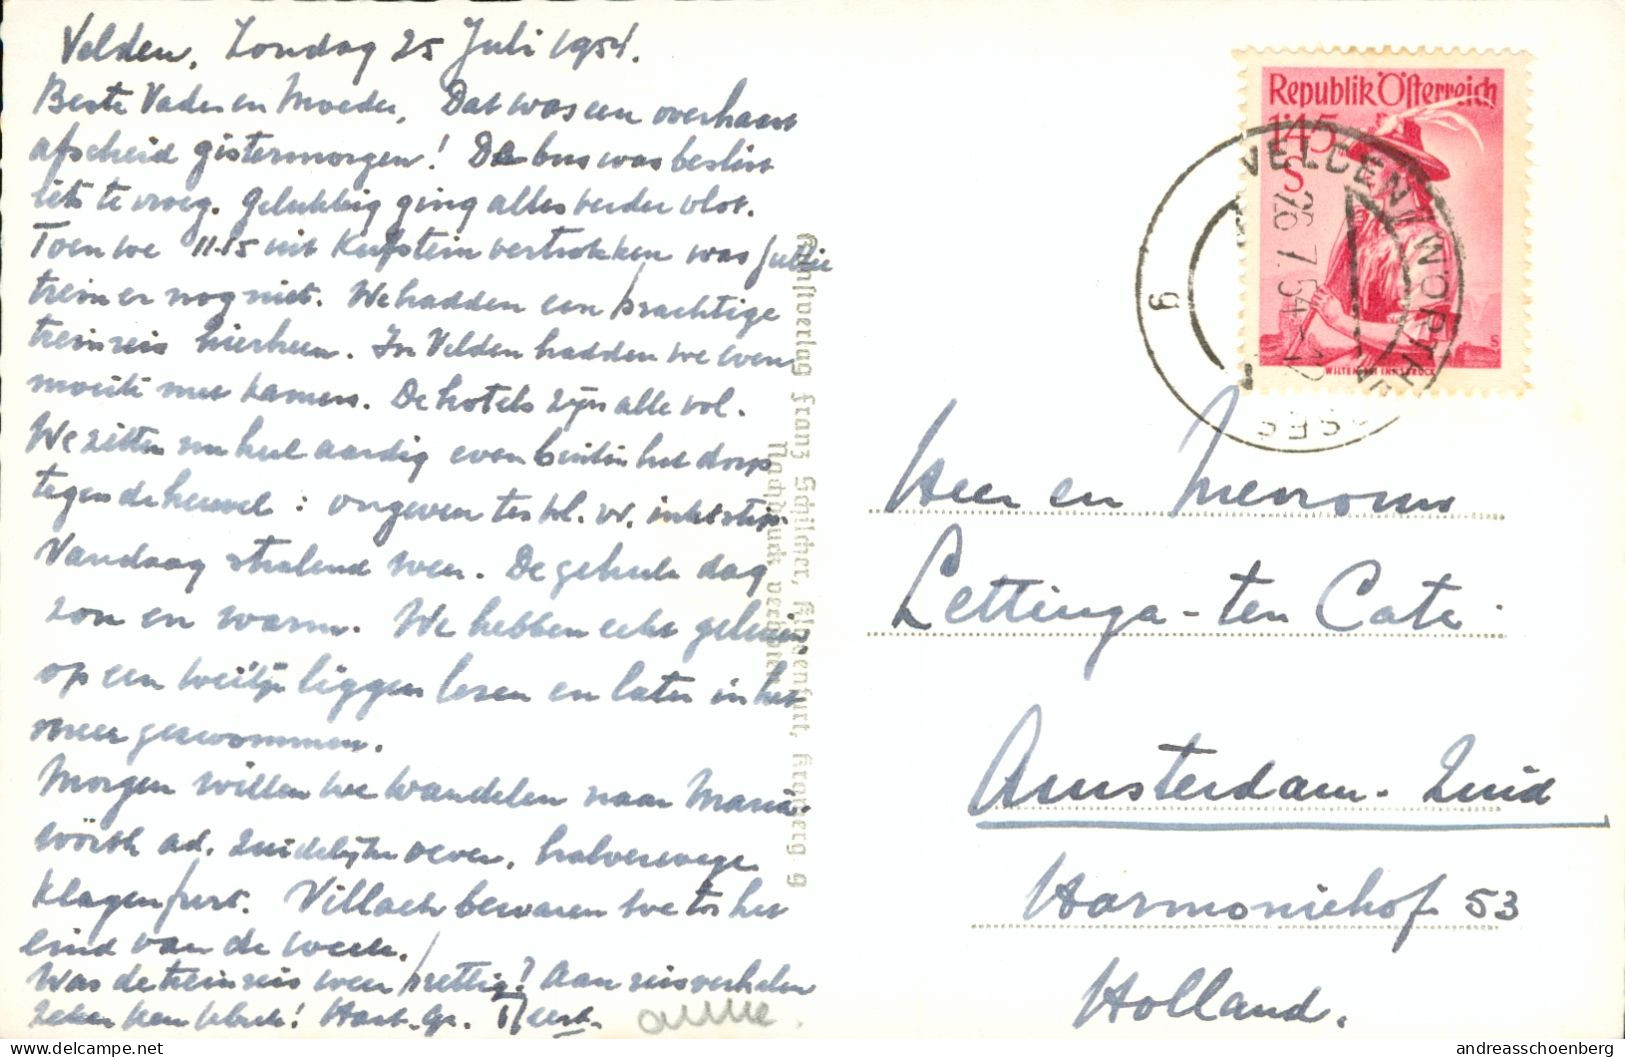 Velden, Zondag 25 Juli 1954.
Beste Vader en Moeder, Dat was een overhaast
afscheid gistermorgen! De bus was beslist
iets te vroeg. Gelukkig ging alles verder vlot.
Toen we 11.15 uit Kufstein vertrokken was jullie
trein er nog niet. We hadden een prachtige
treinreis hierheen. In Velden hadden we even
moeite met kamers. De hotels zijn alle vol.
We zitten nu heel aardig even buiten het dorp
tegen de heuvel:
Vandaag stralend weer. De gehele dag
zon en warm. We hebben echt geluierd,
op een weitje liggen lezen en later in het
meer gezwommen.
Morgen willen we wandelen naar Maria-
wörth ad. zuidelijke oever, halverwege
Klagenfurt. Villach bewaren we tot het
eind van de week.
Was de treinreis weer prettig? Aan reisverhalen
zeker geen gebrek! Hart. Gr. Tjeert.
anne.
Kunstverlag Franz Schilcher, Klagenfurt, Kranzberg 9
Nachdruck verboten
Republik Österreich
1'45
S
WILTEN BEI INNSBRUCK
5
VELDEN WÖRTH
26.7.54
g
Heer en Mevrouw
Lettinga-ten Cate.
Amsterdam-Zuid
Harmoniehof 53
Holland.
andreasschoenberg